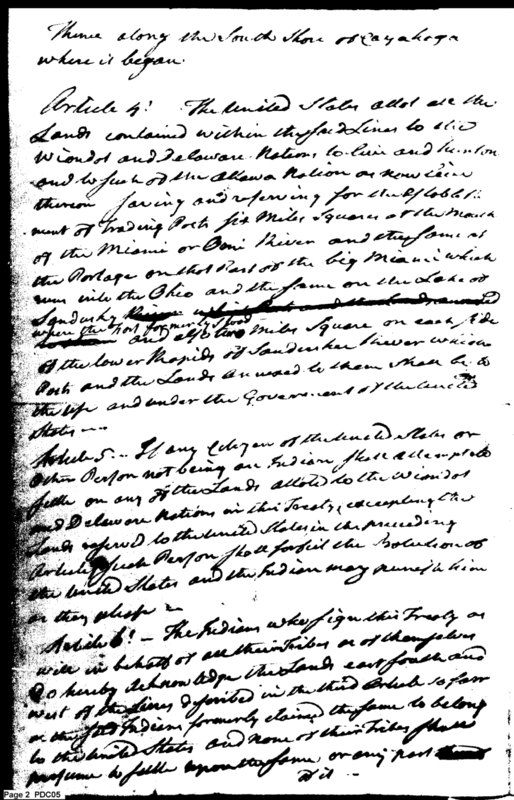 Thence along the South Shore of Cayahoga
where it began.
Article 4: The United States allot all the
Lands contained within the said Lines to the
Wiondot and Delaware Nations to live and hunt on
and to such of the Ottawa Nation as now live
thereon saving and reserving for the Establish
ment of trading Posts six Miles Square at the Mouth
of the Miami or Omi River and the same at
the Portage on that Part of the big Miami which
runs into the Ohio and the same on the Lake of
Sandusky
where the Fort formerly stood
and also two Miles Square on each Side
of the lower Rapids of Sanduskee River which
Posts and the Lands annexed to them shall be to
the use and under the Government of the United
States
Article 5. If any Citizen of the United States or
Other Person not being an Indian shall attempt to
settle on any of the Lands alloted to the Wiondot
and Delaware Nations in this Treaty, excepting the
Lands reserved to the United States in the preceding
Article, Such Person shall forfeit the Protection of
the United States and the Indian may punish him
as they please
Article 6: The Indians who sign this Treaty as
well in behalf of all their Tribes as of themselves
Do hereby Acknowledge the Lands east South and
west of the Lines described in the third Article so farr
as the said Indians formerly claimed the same to belong
to the United States and None of their Tribes shall
presume to settle upon the same or any part
of it
Page 2 PDC05